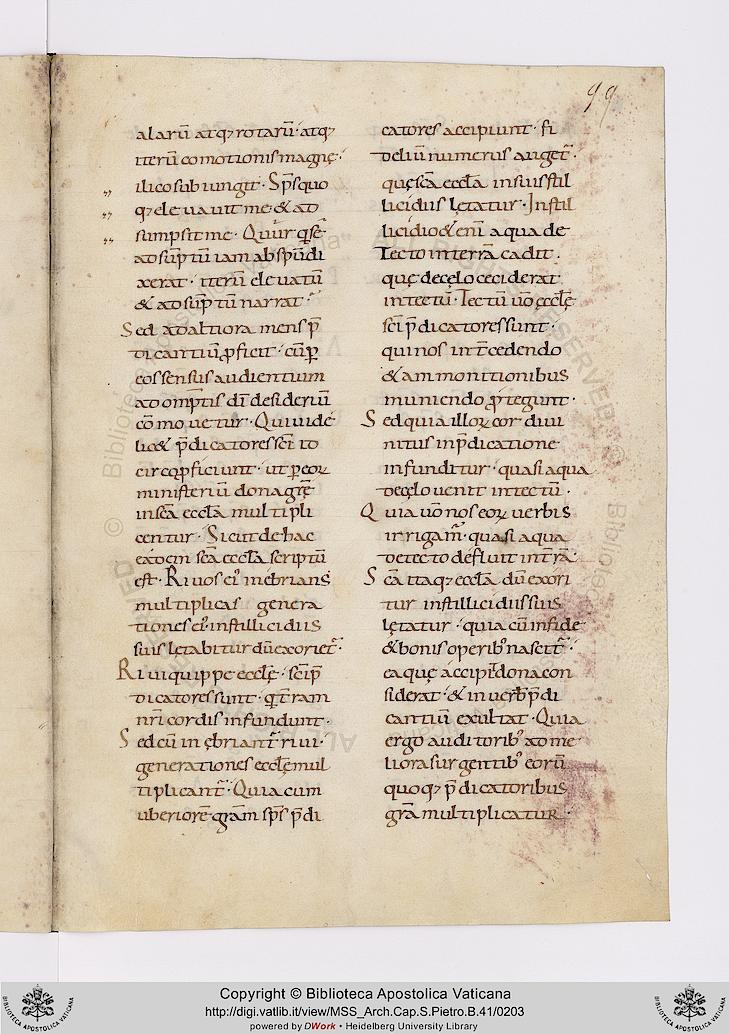 99
alarū atq; rotarū· atq;
iterū cōmotionis magnę·
ilico subiungit· Sp̄s quo
q; eleuauit me· & ad
sumpsit me· Quur q̄sē
adsūptū iam ab sp̄u di
xerat· iterū eleuatū
& adsūptū narrat·
Sed ad altiora mens p̄
dicantiū ꝓficit· cū ꝑ
eos sensus audientium
ad om̄ptis dī desideriū
cōmouetur· Qui uide
lic& p̄dicatores sc̄i to
ciēs ꝓficiunt· ut ꝑ eoꝝ
ministeriū dona grę̄
in sc̄a eccl̄a multipli
centur· Sicut de hac
eadem sc̄a eccl̄a scriptū
est· Riuos ei᾽ inebrians
multiplicas genera
tiones ei᾽· in stillicidiis
suis lętabitur dū exoriet̄·
Riui quippe eccl̄ę· sc̄i p̄
dicatores sunt· q̄ t̄ram
nr̄i cordis infundunt·
Sed cū inębriant̄ riui·
generationes eccl̄ę mul
tiplicant̄· Quia cum
uberiorē gr̄am sp̄s p̄di
catores accipiunt· fi
deliū numerus auget̄·
quę sc̄a eccl̄a in suis stil
licidiis lętatur· In stil
licidio & enī aqua de
tecto in terrā cadit·
quę de cęlo ceciderat
in tectū· Tectū u͞o eccl̄ę
sc̄i p̄dicatores sunt·
qui nos int̄cedendo
& ammonitionibus
muniendo ꝓtegunt·
Sed quia illoꝝ cor diui
nitus in p̄dicatione
infunditur· quasi aqua
de cęlo uenit in tectū·
Quia u͞o nos eoꝝ uerbis
irrigam̄· quasi aqua
de tecto defluit in t̄rā·
Sc̄a itaq; eccl̄a dū exori
tur in stillicidiis suis
lętatur· quia cū in fide
& bonis operib; nascit̄·
ea quę accipit dona con
siderat· & in uerb̄ p̄di
cantiū exultat· Quia
ergo auditorib; ad me
liora surgentib; eorū
quoq; p̄dicatoribus
gr̄a multiplicatur·
Copyright © Biblioteca Apostolica Vaticana
http://digi.vatlib.it/view/MSS_Arch.Cap.S.Pietro.B.41/0203
powered by DWork • Heidelberg University Library